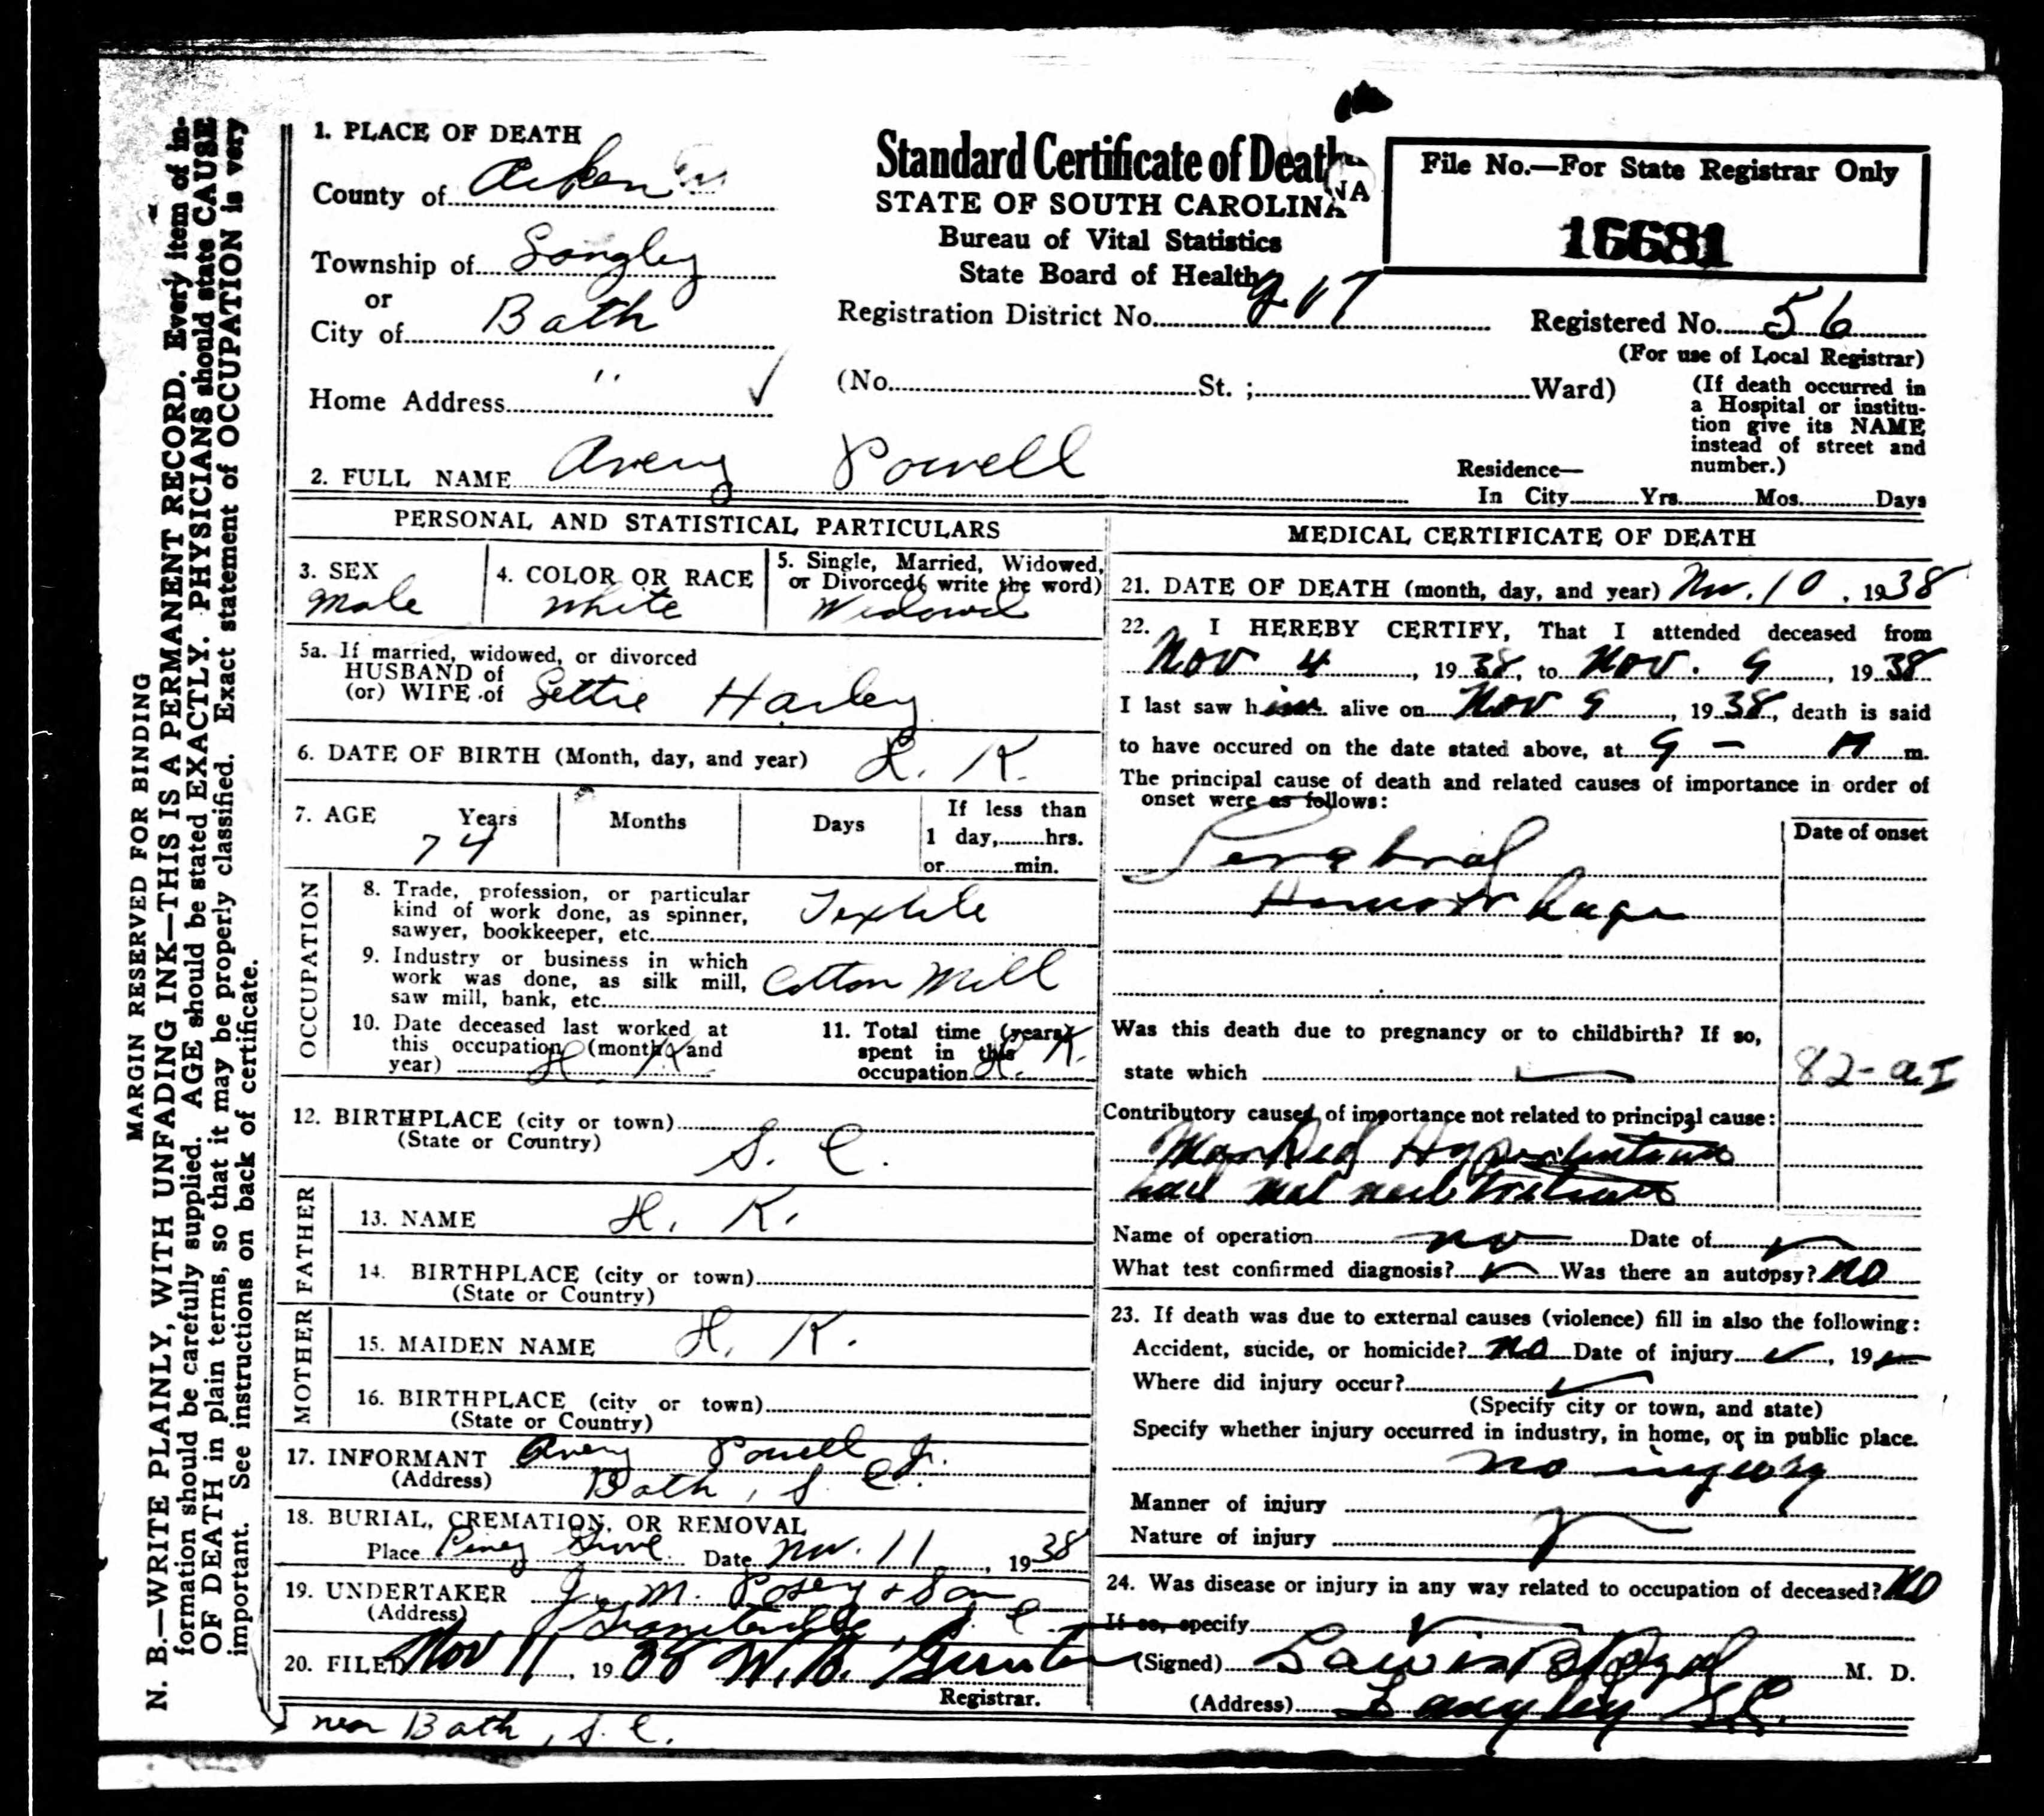 1. PLACE OF DEATH
County of Aiken
Township of Langley
or
City of Bath
Home Address " ✓
Standard Certificate of Death
STATE OF SOUTH CAROLINA
NA
Bureau of Vital Statistics
State Board of Health
Registration District No. 217
(No. St. ; Ward)
File No.—For State Registrar Only
16681
Registered No. 56
(For use of Local Registrar)
(If death occurred in
a Hospital or institu-
tion give its NAME
instead of street and
number.)
2. FULL NAME Avery Powell
Residence—
In City Yrs. Mos. Days
PERSONAL AND STATISTICAL PARTICULARS
3. SEX
Male
4. COLOR OR RACE
White
5. Single, Married, Widowed,
or Divorced( write the word)
Widowed
5a. If married, widowed, or divorced
HUSBAND of
(or) WIFE of Lettie Harley
6. DATE OF BIRTH (Month, day, and year) D. K.
7. AGE Years Months Days
74
If less than
1 day, hrs.
or min.
OCCUPATION
8. Trade, profession, or particular
kind of work done, as spinner,
sawyer, bookkeeper, etc. Textile
9. Industry or business in which
work was done, as silk mill,
saw mill, bank, etc. Cotton Mill
10. Date deceased last worked at
this occupation (month and
year) D. K.
11. Total time (years)
spent in this
occupation D. K.
12. BIRTHPLACE (city or town)
(State or Country) S. C.
FATHER
13. NAME D. K.
14. BIRTHPLACE (city or town)
(State or Country)
MOTHER
15. MAIDEN NAME D. K.
16. BIRTHPLACE (city or town)
(State or Country)
17. INFORMANT Avery Powell Jr.
(Address) Bath, S. C.
18. BURIAL, CREMATION, OR REMOVAL
Place Piney Grove Date Nov. 11, 1938
19. UNDERTAKER J. M. Posey & Son
(Address) Graniteville, S C
20. FILED Nov 11, 1938 W. B. Gunter
Registrar.
near Bath, S. C.
MEDICAL CERTIFICATE OF DEATH
21. DATE OF DEATH (month, day, and year) Nov. 10, 1938
22. I HEREBY CERTIFY, That I attended deceased from
Nov 4, 1938, to Nov. 9, 1938
I last saw him alive on Nov 9, 1938, death is said
to have occured on the date stated above, at 9 — m.
The principal cause of death and related causes of importance in order of
onset were as follows:
Date of onset
Cerebral
Hemorrhage
Was this death due to pregnancy or to childbirth? If so,
state which ✓
82-a.I
Contributory caused of importance not related to principal cause:
Marked Hypertension
Name of operation no Date of ✓
What test confirmed diagnosis? ✓ Was there an autopsy? no
23. If death was due to external causes (violence) fill in also the following:
Accident, sucide, or homicide? no Date of injury ✓, 19
Where did injury occur? ✓
(Specify city or town, and state)
Specify whether injury occurred in industry, in home, or in public place.
no injury
Manner of injury
Nature of injury
24. Was disease or injury in any way related to occupation of deceased? no
If so, specify ✓
(Signed) M. D.
(Address) Langley S.C.
MARGIN RESERVED FOR BINDING
N. B.—WRITE PLAINLY, WITH UNFADING INK—THIS IS A PERMANENT RECORD. Every item of in-
formation should be carefully supplied. AGE should be stated EXACTLY. PHYSICIANS should state CAUSE
OF DEATH in plain terms, so that it may be properly classified. Exact statement of OCCUPATION is very
important. See instructions on back of certificate.